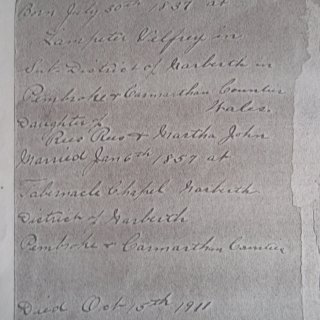 Born July 30th 1837 at
Lampeter Valfrey in
Sub-District of Narberth in
Pembroke & Carmarthan Counties
Wales.
Daughter of
Rees Rees & Martha John
Married Jan 6th 1857 at
Tabernacle Chapel Narberth
District of Narberth
Pembroke & Carmarthan Counties
Died Oct 15th 1911